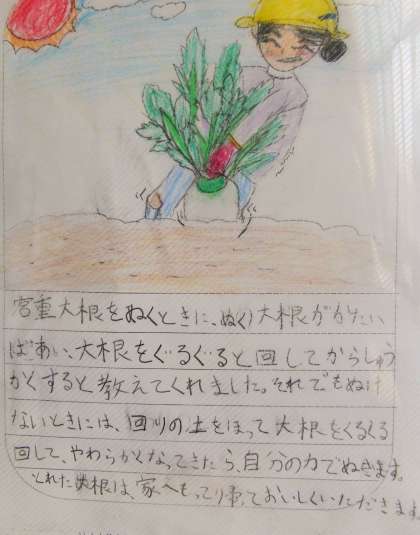 宮重大根をぬくときに、ぬく大根がかたい
ばあい、大根をぐるぐると回してからしゅう
かくすると教えてくれました。それでもぬけ
ないときには、回りの土をほって大根をくるくる
回して、やわらかくなってきたら、自分の力でぬきます。
とれた大根は、家へもって帰っておいしくいただきます